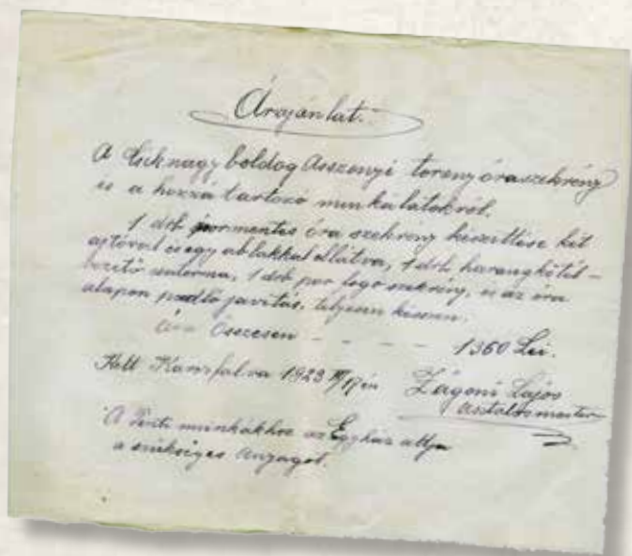 Árajánlat.
A Csíknagy boldog Asszonyi torony óraszekrény
és a hozzá tartozó munkálatokról.
1 drb pormentes óra szekrény készittése két
ajtóval és egy ablakkal ellátva, 1 drb harangkötél-
csatorna, 1 drb por fogó szekrény, és az óra
alapon padló javitás, teljesen készen.
Ára Összesen - - - - 1360 Lei.
Kelt Karcfalva 1923 én Zágoni Lajos
asztalos mester
A Fenti munkákhoz az Egyház adja
a szükséges anyagot.